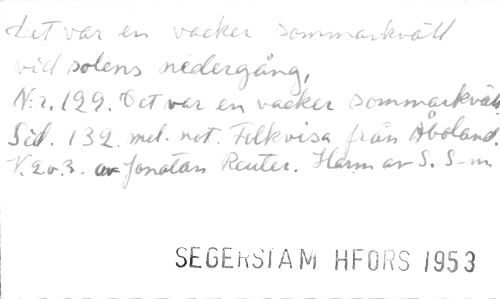 Det var en vacker sommarkväll
vid solens nedergång,
N:r. 129. Det var en vacker sommarkväll
Sid. 132 mel. not. Folkvisa från Åboland.
V. 2 o. 3. av Jonatan Reuter. Harm av S. S-m
SEGERSTAM HFORS 1953